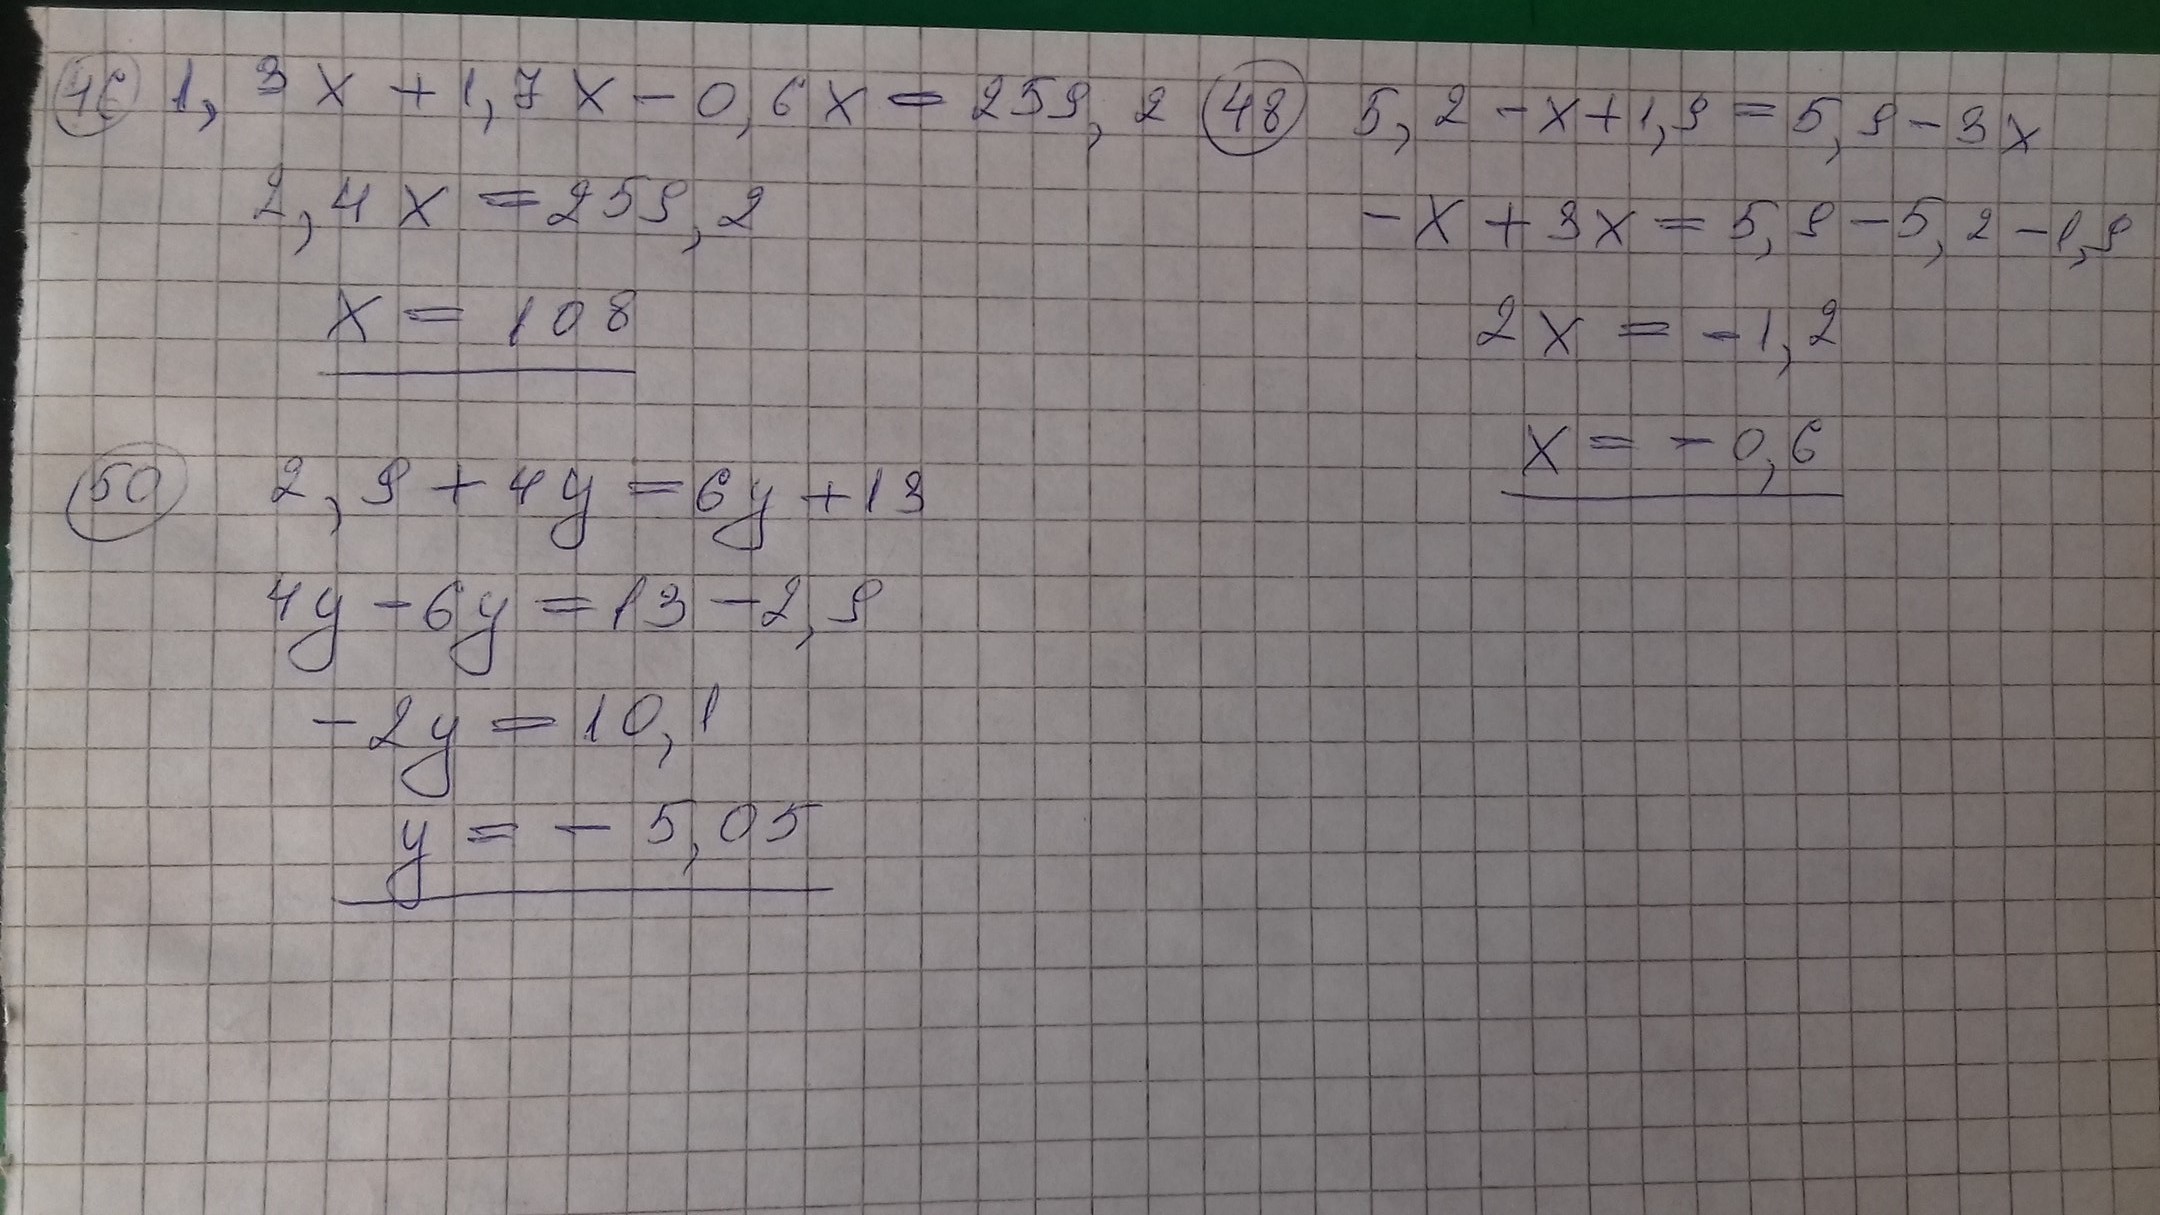 46 1,3x+1,7x-0,6x=259,2
2,4x=259,2
x=108
48 5,2-x+1,9=5,9-3x
-x+3x=5,9-5,2-1,9
2x=-1,2
x=-0,6
50 2,9+4y=6y+13
4y-6y=13-2,9
-2y=10,1
y=-5,05